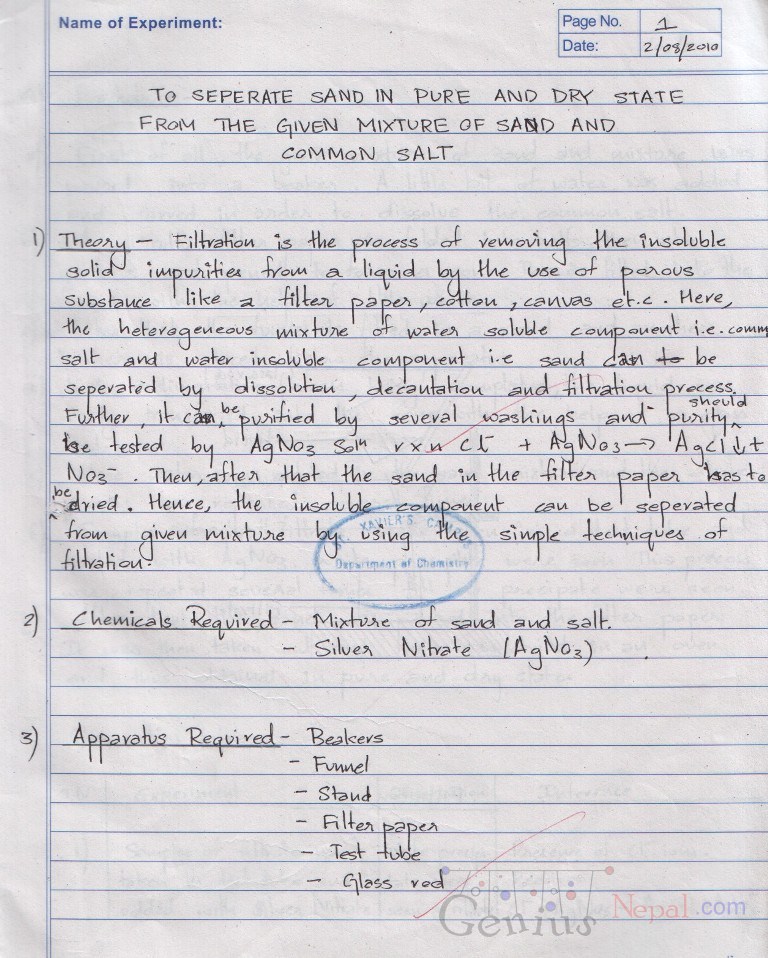 Name of Experiment:
Page No. 1
Date: 2/08/2010
TO SEPERATE SAND IN PURE AND DRY STATE
FROM THE GIVEN MIXTURE OF SAND AND
COMMON SALT
1) Theory – Filtration is the process of removing the insoluble
solid impurities from a liquid by the use of porous
substance like a filter paper, cotton, canvas et.c. Here,
the heterogeneous mixture of water soluble component i.e. comm
salt and water insoluble component i.e sand can to be
seperated by dissolution, decantation and filtration process.
Further, it can be purified by several washings and purity should
be tested by AgNO3 Soln rxn Cl⁻ + AgNO3 → AgCl↓ +
NO3⁻. Then, after that the sand in the filter paper has to
be dried. Hence, the insoluble component can be seperated
from given mixture by using the simple techniques of
filtration.
ST. XAVIER'S CAMPUS
Department of Chemistry
2) Chemicals Required – Mixture of sand and salt.
– Silver Nitrate (AgNO3)
3) Apparatus Required – Beakers
– Funnel
– Stand
– Filter paper
– Test tube
– Glass rod
Genius Nepal.com